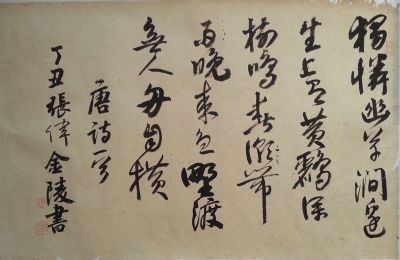 獨憐幽草澗邊
生上有黃鸝深
樹鳴春潮帶
雨晚來急野渡
無人舟自橫
唐詩一首
丁丑張偉金陵書